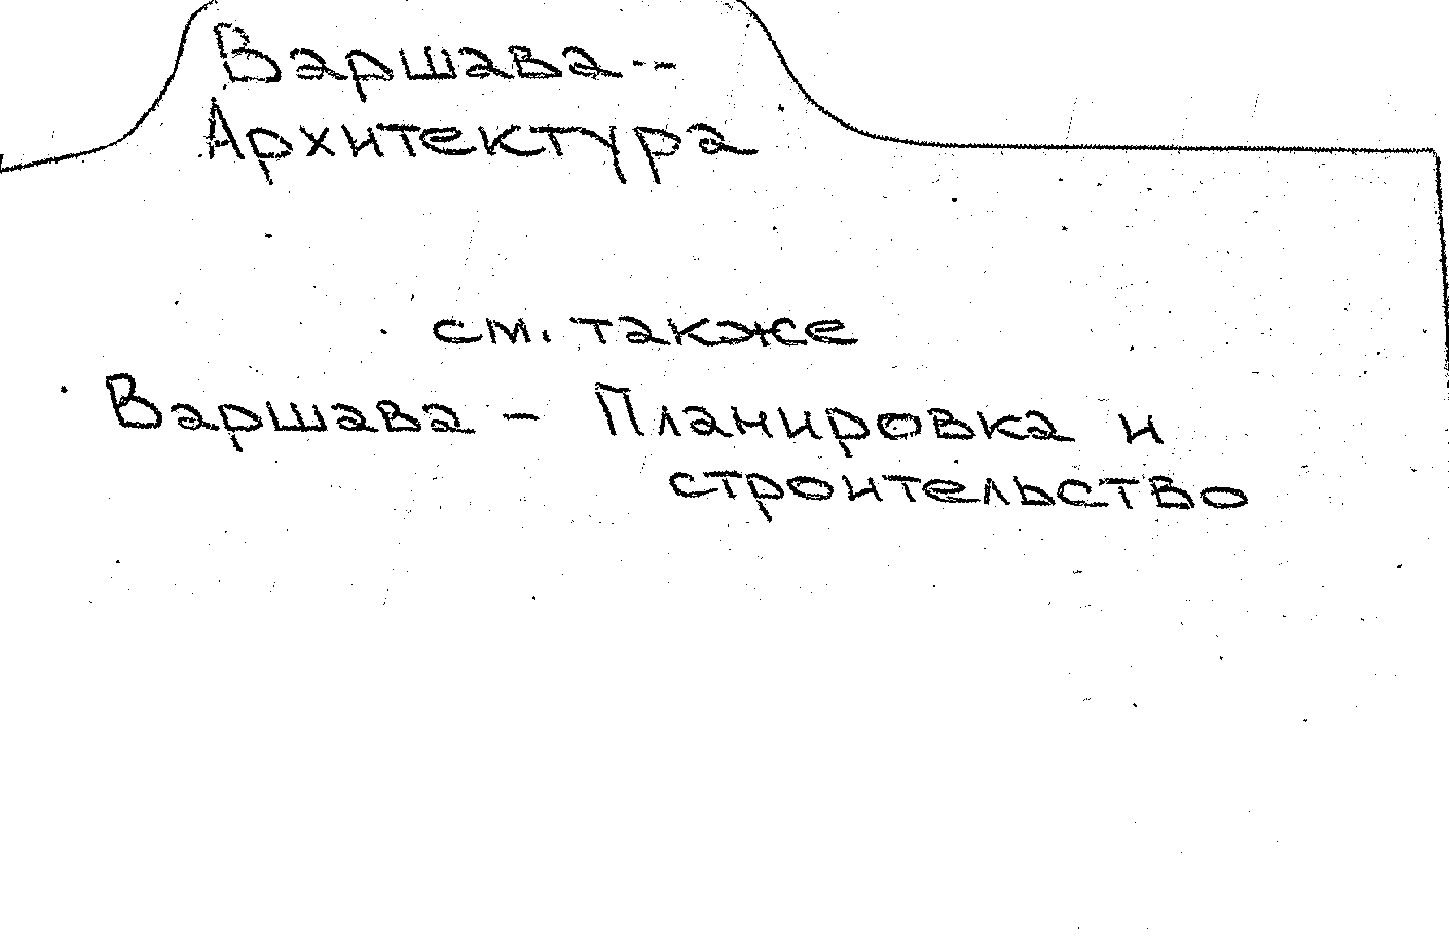 Варшава--
Архитектура
см. также
Варшава - Планировка и
строительство